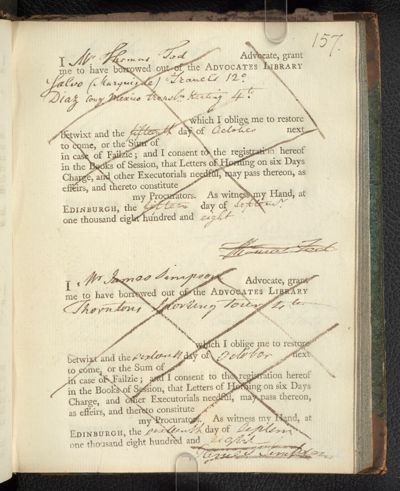 157.
I Mr Thomas Tod Advocate, grant
me to have borrowed out of the ADVOCATES LIBRARY
Salvo (Marquis de) Travels 12o
Diaz conq Mexico transl. Keating 4to
which I oblige me to restore
betwixt and the fifteenth day of October next
to come, or the Sum of
in case of Failzie; and I consent to the registration hereof
in the Books of Session, that Letters of Horning on six Days
Charge, and other Executorials needful, may pass thereon, as
effeirs, and thereto constitute
my Procurators. As witness my Hand, at
EDINBURGH, the day of September
one thousand eight hundred and eight
Thomas Tod
I Mr James Simpson Advocate, grant
me to have borrowed out of the ADVOCATES LIBRARY
Thorntons Sporting Tour
which I oblige me to restore
betwixt and the sixteenth day of October next
to come, or the Sum of
in case of Failzie; and I consent to the registration hereof
in the Books of Session, that Letters of Horning on six Days
Charge, and other Executorials needful, may pass thereon,
as effeirs, and thereto constitute
my Procurators. As witness my Hand, at
EDINBURGH, the sixteenth day of Septem
one thousand eight hundred and eight
James Simpson